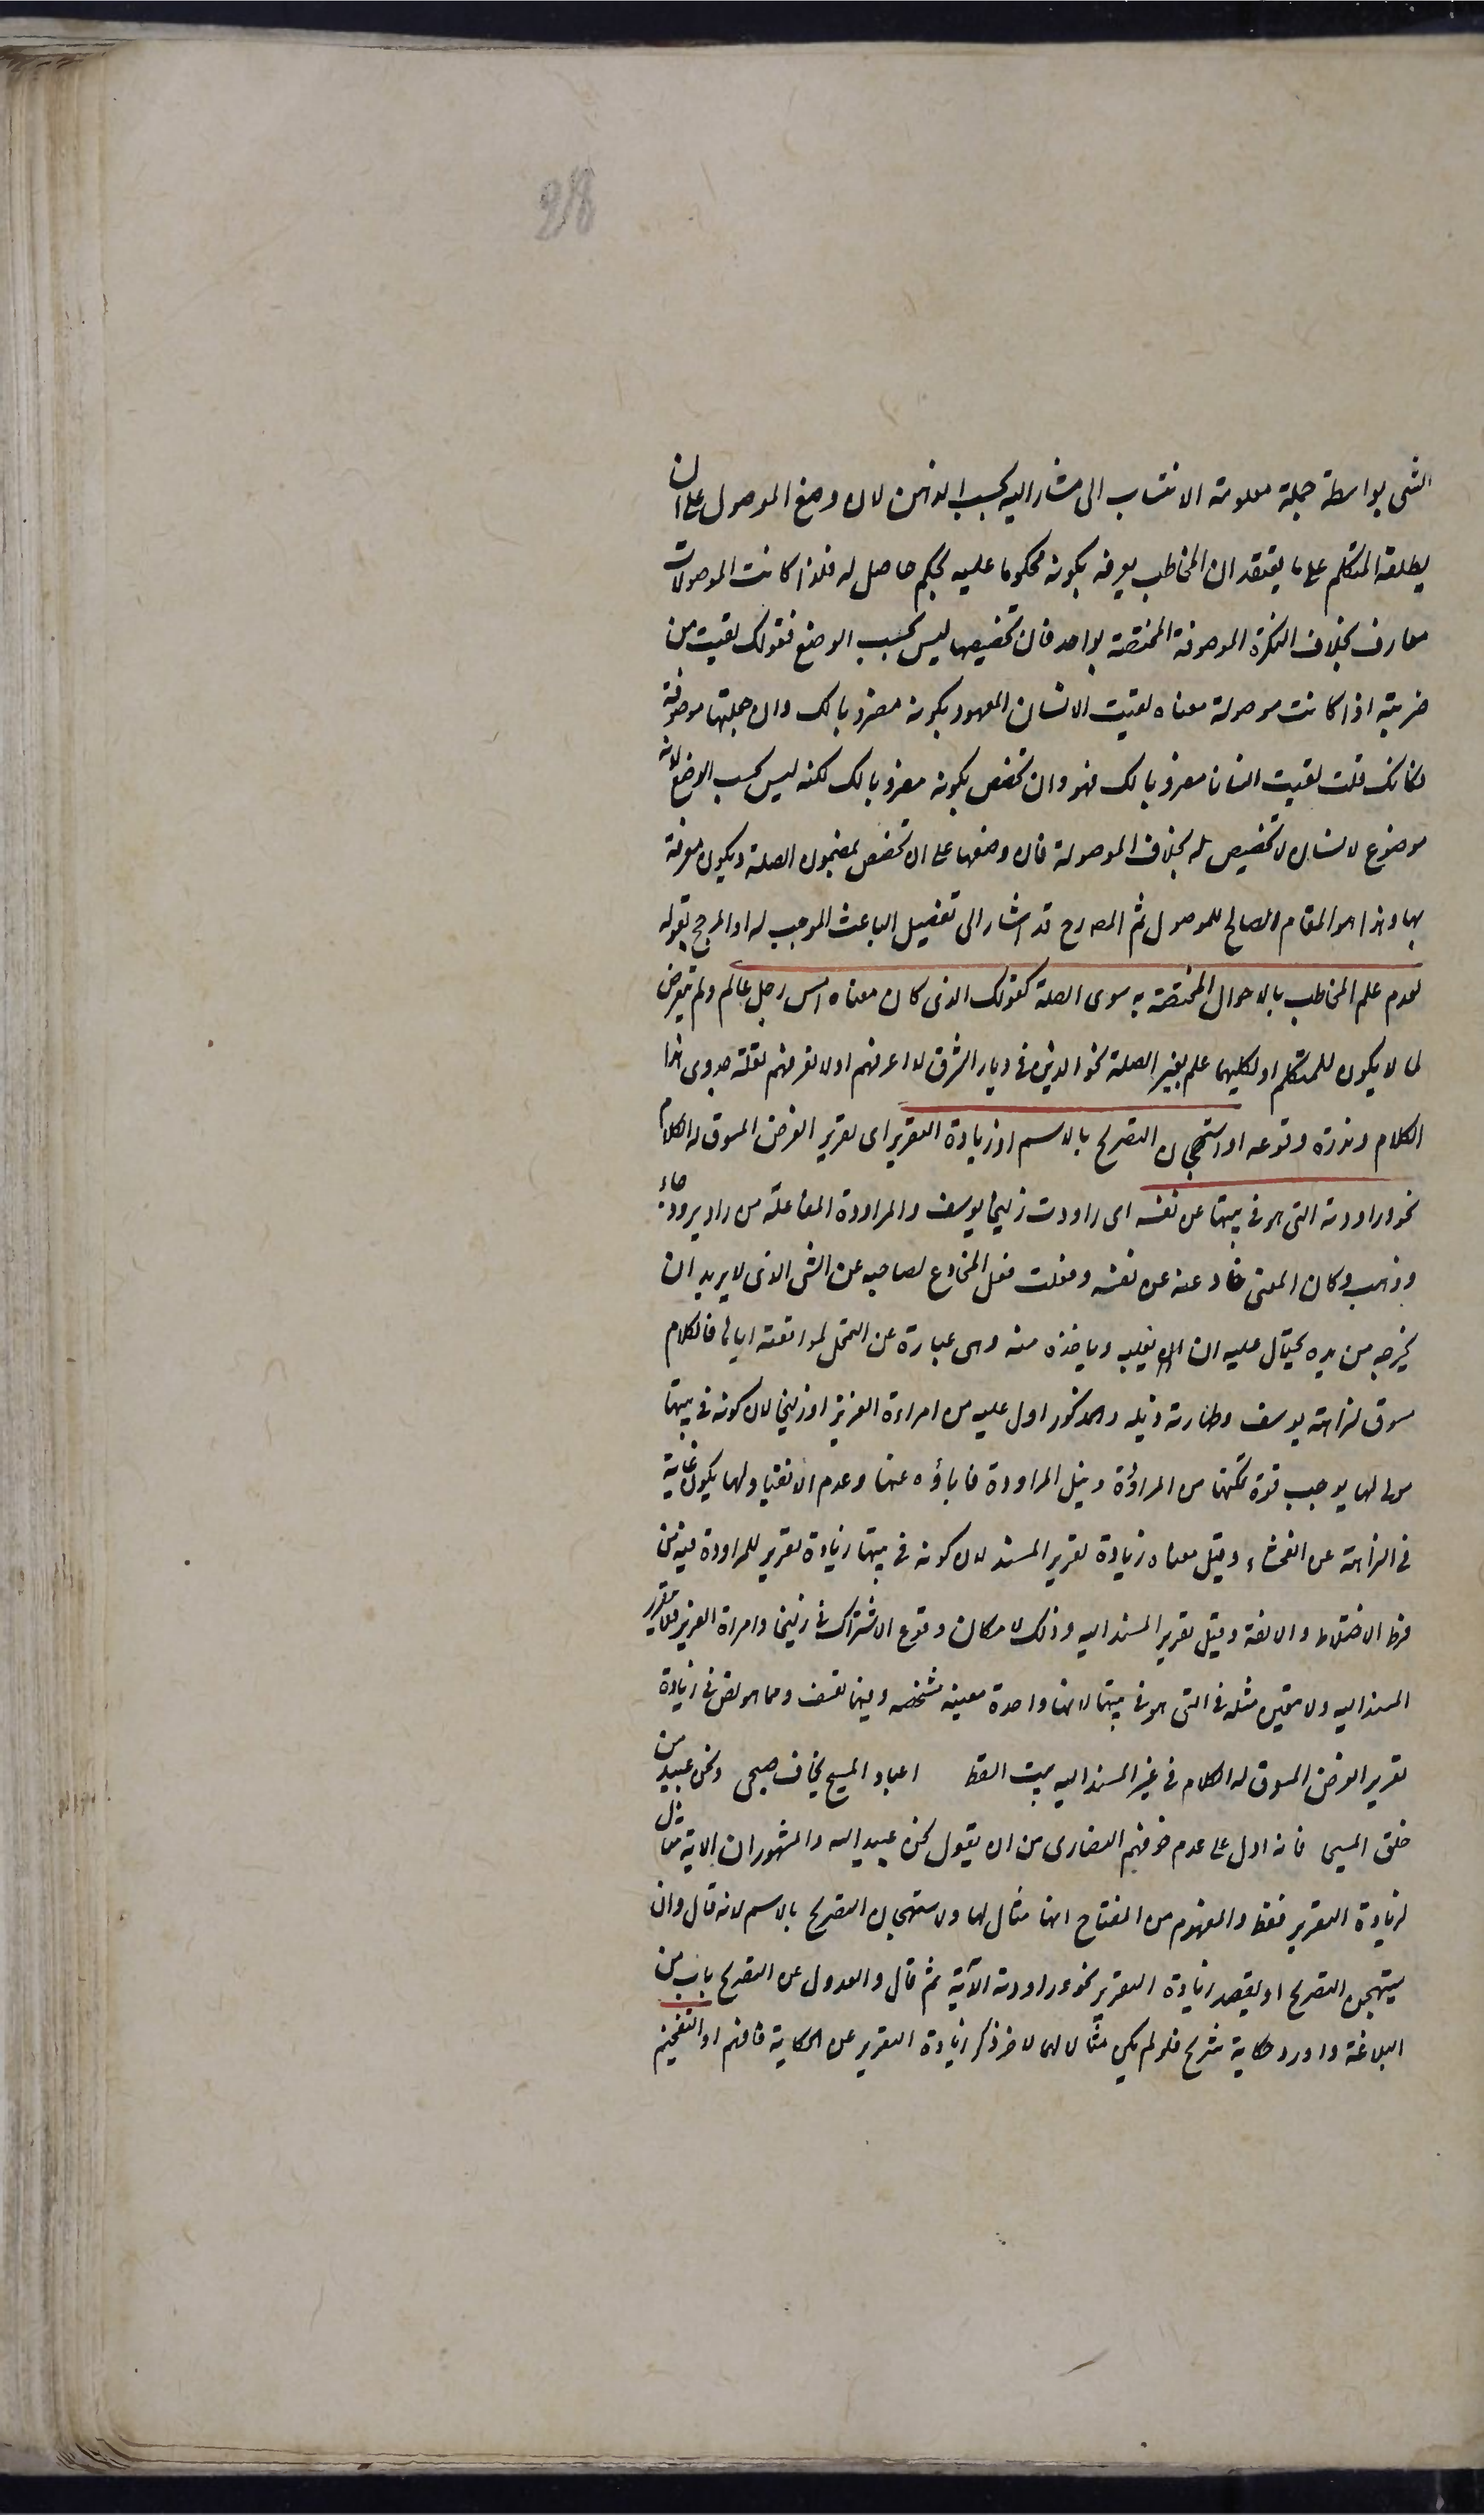 28
الشئ بواسطة جملة معلومة الانتساب الى مشار اليه بحسب الذهن لان وضع الموصول على ان
يطلقه المتكلم على ما يعتقد ان المخاطب يعرفه بكونه محكوما عليه بحكم حاصل له فلذا كانت الموصولات
معارف بخلاف النكرة الموصوفة المختصة بواحد فان تخصيصها ليس بحسب الوضع فقولك لقيت من
ضربته اذا كانت موصولة معناه لقيت الانسان المعهود بكونه مضروبا لك وان جعلتها موصوفة
فكانك قلت لقيت انسانا مضروبا لك فهو وان تخصص بكونه مضروبا لك لكنه ليس بحسب الوضع لانه
موضوع لانسان لا تخصيص له بخلاف الموصولة فان وضعها على ان تخصص بمضمون الصلة ويكون معرفة
بها وهذا هو المقام الصالح للموصول ثم المصه رح قد اشار الى تفصيل الباعث الموجب له او المرجح بقوله
لعدم علم المخاطب بالاحوال المختصة به سوى الصلة كقولك الذى كان معناه امس رجل عالم ولم يتعرض
لما لا يكون للمتكلم او لكليهما علم بغير الصلة نحو الذين فى ديار الشرق لا اعرفهم او لا نعرفهم لقلة جدوى هذا
الكلام وندرة وقوعه او استهجان التصريح بالاسم او زيادة التقرير اى تقرير الغرض المسوق له الكلام
نحو وراودته التى هو فى بيتها عن نفسه اى راودت زليخا يوسف والمراودة المفاعلة من راد يرود جاء
وذهب وكان المعنى خادعته عن نفسه وفعلت فعل المخادع لصاحبه عن الشئ الذى لا يريد ان
يخرجه من يده يحتال عليه ان يغلبه وياخذه منه وهى عبارة عن التمحل لمواقعته اياها فالكلام
مسوق لنزاهة يوسف وطهارة ذيله والمذكور ادل عليه من امراءة العزيز او زليخا لان كونه فى بيتها
مولى لها يوجب قوة تمكنها من المراودة ونيل المراودة فاباؤه عنها وعدم الانقياد لها يكون غاية
فى النزاهة عن الفحشاء وقيل معناه زيادة تقرير المسند لان كونه فى بيتها زيادة تقرير للمراودة لما فيه من
فرط الاختلاط والالفة وقيل تقرير المسند اليه وذلك لامكان وقوع الاشتراك فى زليخا وامراة العزيز فلا يتقرر
المسند اليه ولا يتعين مثله فى التى هو فى بيتها لانها واحدة معينة مشخصه وفيها تعسف ومما هو نص فى زيادة
تقرير الغرض المسوق له الكلام فى غير المسند اليه بيت السقط اعباد المسيح يخاف صحبى ونحن عبيد من
خلق المسيحا فانه ادل على عدم خوفهم النصارى من ان يقول نحن عبيد الله والمشهور ان الاية مثال
لزيادة التقرير فقط والمفهوم من المفتاح انها مثال لها ولاستهجان التصريح بالاسم لانه قال وان
يستهجن التصريح او يقصد زيادة التقرير نحو وراودته الآية ثم قال والعدول عن التصريح باب من
البلاغة واورد حكاية شريح فلو لم يكن مثالا لهما لاخر ذكر زيادة التقرير عن الحكاية فافهم او التفخيم